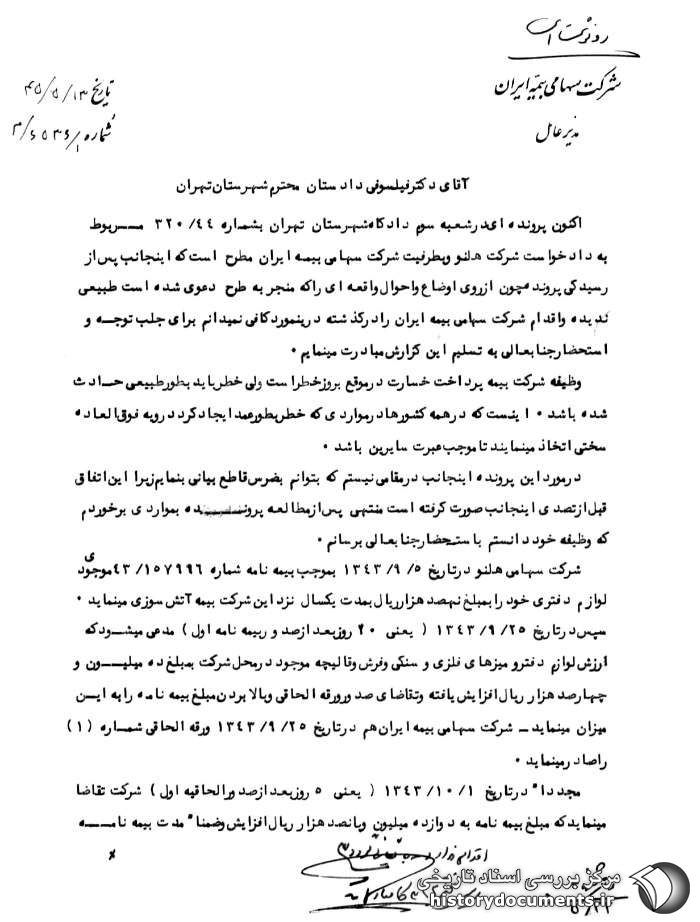 رونوشت
شرکت سهامی بیمه ایران
مدیر عامل
تاریخ ۴۵/۵/۱۳
شماره
آقای دکتر فیلسوفی دادستان محترم شهرستان تهران
اکنون پرونده ای در شعبه سوم دادگاه شهرستان تهران بشماره ۳۲۰/۴۴ مــربوط
به دادخواست شرکت هلنو وبطرفیت شرکت سهامی بیمه ایران مطرح است که اینجانب پس از
رسیدگی پرونده چون ازروی اوضاع واحوال واقعه ای راکه منجر به طرح دعوی شده است طبیعی
ندیده واقدام شرکت سهامی بیمه ایران را درگذشته دراینمورد کافی نمیدانم برای جلب توجــه و
استحضار جنابعالی به تسلیم این گزارش مبادرت مینمایم ۰
وظیفه شرکت بیمه پرداخت خسارت درموقع بروز خطر است ولی خطر باید بطور طبیعی حــادث
شده باشد ۰ اینست که در همه کشورها درمواردی که خطر بطور عمد ایجاد گردد رویه فوق العاده
سختی اتخاذ مینمایند تا موجب عبرت سایرین باشد ۰
درمورد این پرونده اینجانب درمقامی نیستم که بتوانم بضرس قاطع بیانی بنمایم زیرا این اتفاق
قبل از تصدی اینجانب صورت گرفته است منتهی پس از مطالعه پرونـــده بمواردی برخوردم
که وظیفه خود دانستم باستحضار جنابعالی برسانم ۰
شرکت سهامی هلنو درتاریخ ۱۳۴۳/۹/۵ بموجب بیمه نامه شماره ۴۳/۱۵۷۹۹۶ موجودی
لوازم دفتری خود را بمبلغ نهصد هزار ریال بمدت یکسال نزد این شرکت بیمه آتش سوزی مینماید ۰
سپس درتاریخ ۱۳۴۳/۹/۲۵ ( یعنی ۲۰ روز بعد از صدور بیمه نامه اول ) مدعی میشود که
ارزش لوازم دفتر و میزهای فلزی و سنگی وفرش وقالیچه موجود درمحل شرکت بمبلغ ده میلیــون و
چهارصد هزار ریال افزایش یافته وتقاضای صدور ورقه الحاقی وبالا بردن مبلغ بیمه نامه را به ایــن
میزان مینماید ـ شرکت سهامی بیمه ایران هم درتاریخ ۱۳۴۳/۹/۲۵ ورقه الحاقی شمــاره (۱)
را صادر مینماید ۰
مجدداً درتاریخ ۱۳۴۳/۱۰/۱ ( یعنی ۵ روز بعد از صدور الحاقیه اول ) شرکت تقاضا
مینماید که مبلغ بیمه نامه به دوازده میلیون وپانصد هزار ریال افزایش وضمناً مدت بیمه نامـــه
مرکز بررسی اسناد تاریخی
historydocuments.ir